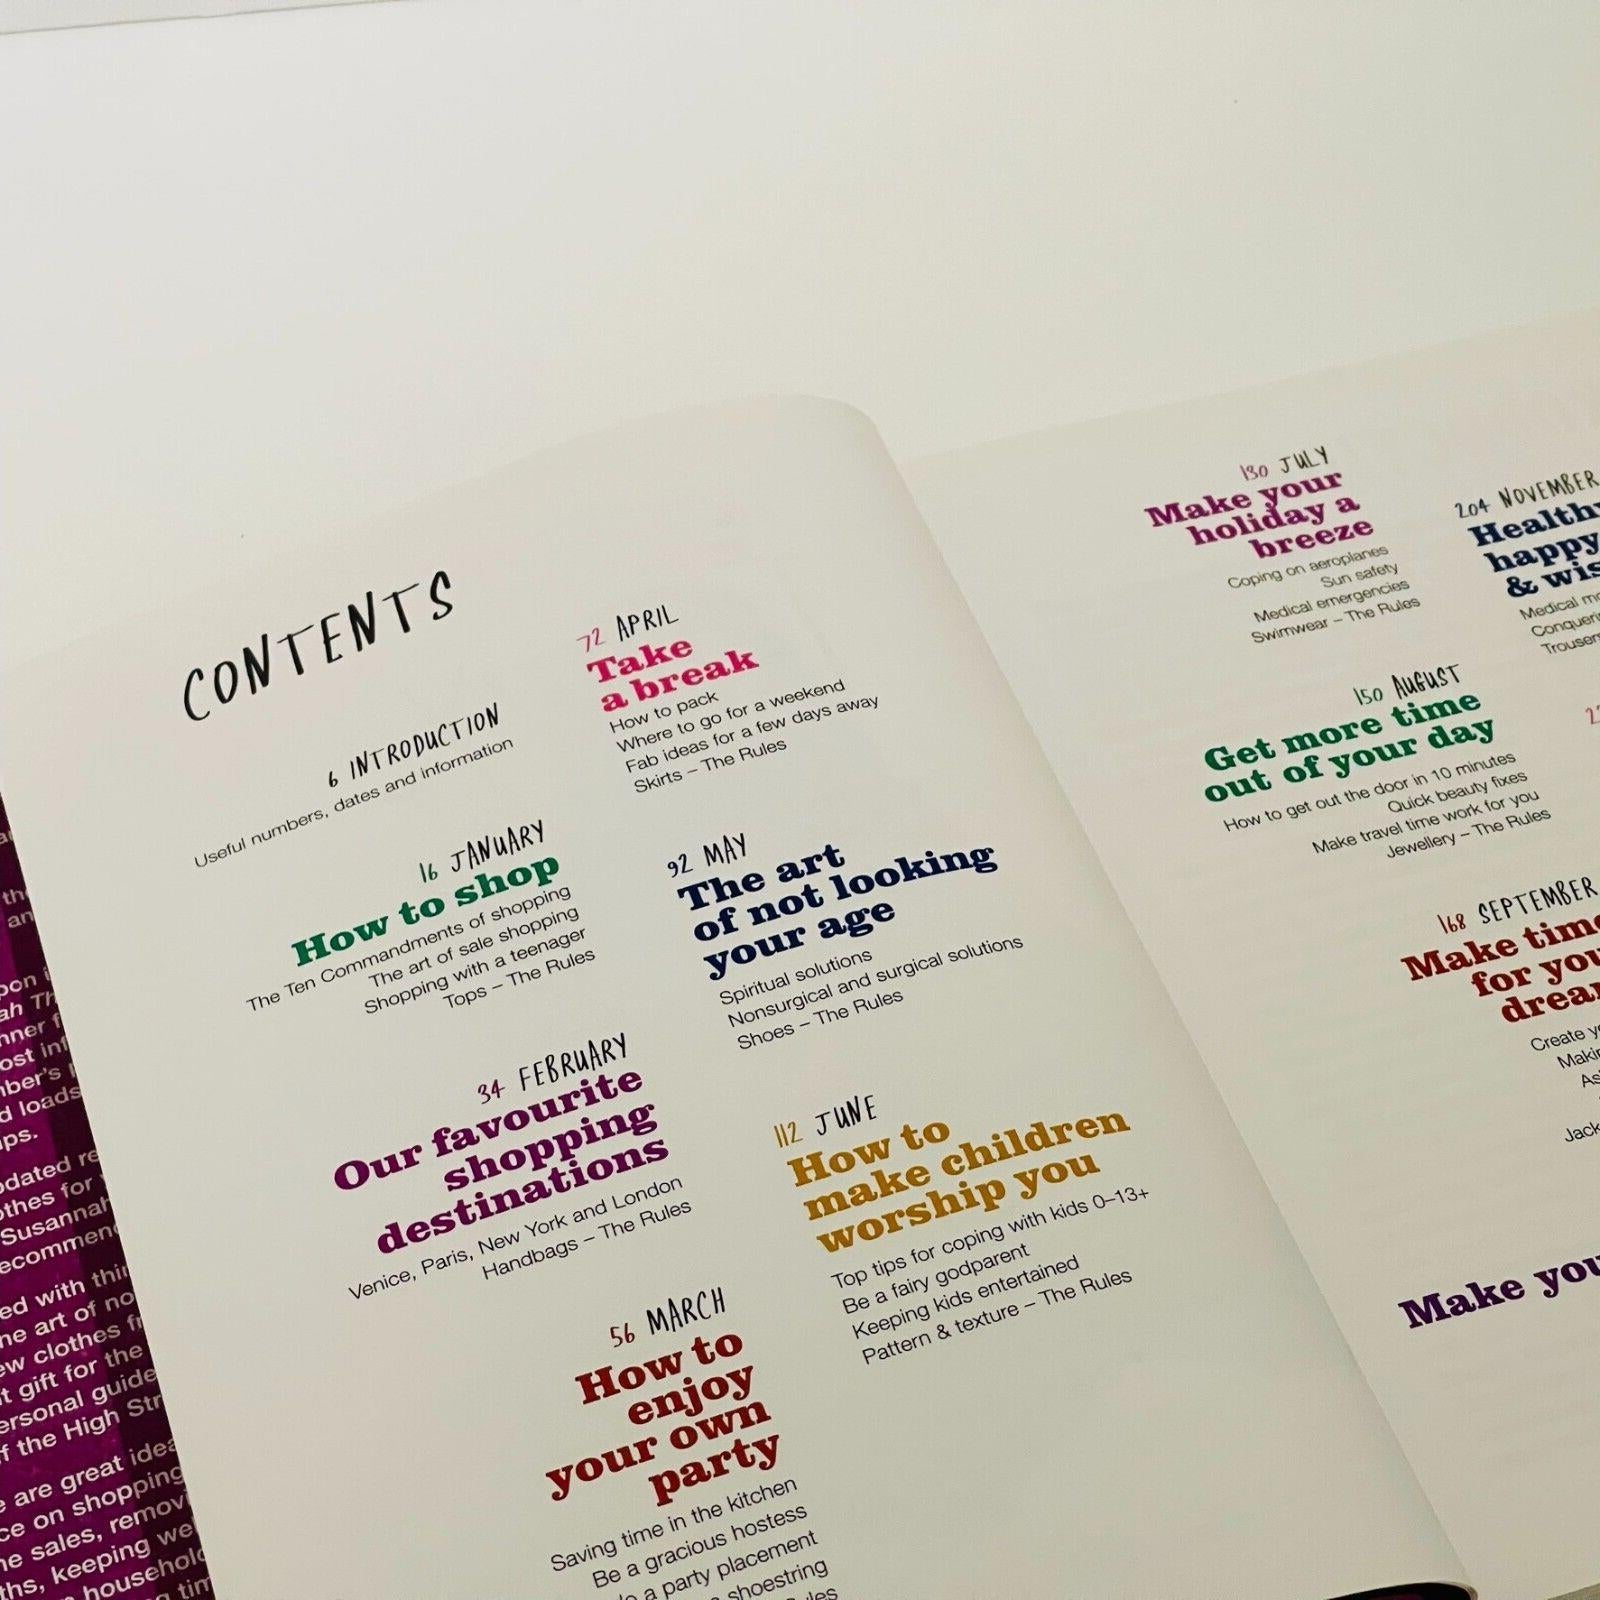 CONTENTS
6 INTRODUCTION
Useful numbers, dates and information
16 JANUARY
How to shop
The Ten Commandments of shopping
The art of sale shopping
Shopping with a teenager
Tops – The Rules
34 FEBRUARY
Our favourite
shopping
destinations
Venice, Paris, New York and London
Handbags – The Rules
56 MARCH
How to
enjoy
your own
party
Saving time in the kitchen
Be a gracious hostess
a party placement
shoestring
72 APRIL
Take
a break
How to pack
Where to go for a weekend
Fab ideas for a few days away
Skirts – The Rules
92 MAY
The art
of not looking
your age
Spiritual solutions
Nonsurgical and surgical solutions
Shoes – The Rules
112 JUNE
How to
make children
worship you
Top tips for coping with kids 0–13+
Be a fairy godparent
Keeping kids entertained
Pattern & texture – The Rules
130 JULY
Make your
holiday a
breeze
Coping on aeroplanes
Sun safety
Medical emergencies
Swimwear – The Rules
150 AUGUST
Get more time
out of your day
How to get out the door in 10 minutes
Quick beauty fixes
Make travel time work for you
Jewellery – The Rules
168 SEPTEMBER
Make time
for
Create
Make
204 NOVEMBER
happy
&
Medical
ups.
for
Susannah
ed with
the art of
ew clothes
gift for the
guide
of the High
are great
on shopping
sales,
keeping
household